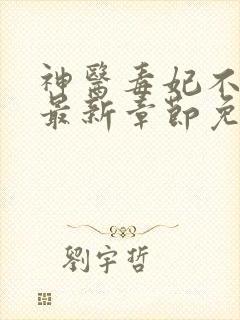 神醫毒妃不
最新章節免
劉宇哲